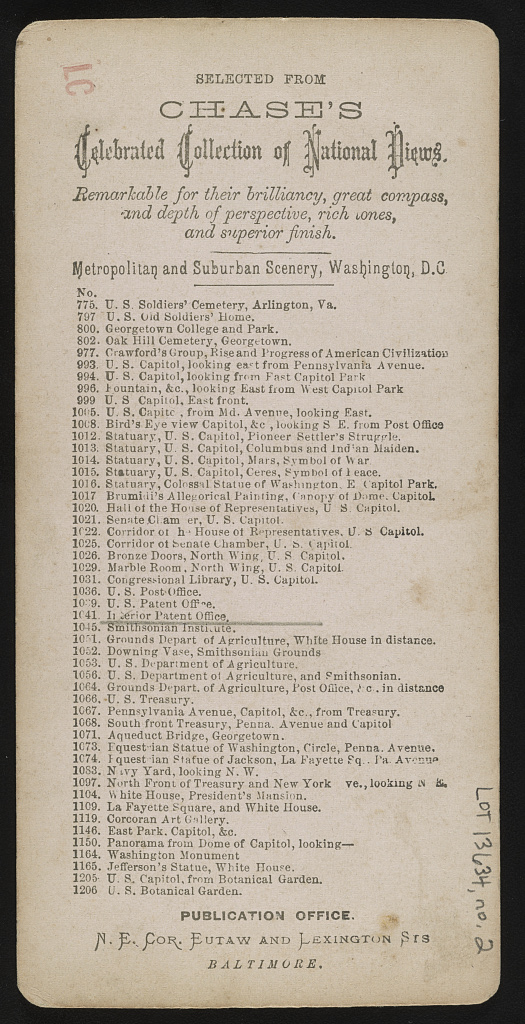 LC
SELECTED FROM
CHASE'S
Celebrated Collection of National Views.
Remarkable for their brilliancy, great compass,
and depth of perspective, rich tones,
and superior finish.
Metropolitan and Suburban Scenery, Washington, D.C.
No.
775. U. S. Soldiers' Cemetery, Arlington, Va.
797 U. S. Old Soldiers' Home.
800. Georgetown College and Park.
802. Oak Hill Cemetery, Georgetown.
977. Crawford's Group, Rise and Progress of American Civilization
993. U. S. Capitol, looking east from Pennsylvania Avenue.
994. U. S. Capitol, looking from East Capitol Park
996. Fountain, &c., looking East from West Capitol Park
999 U. S Capitol, East front.
1005. U. S. Capitol, from Md. Avenue, looking East.
1008. Bird's Eye view Capitol, &c., looking S. E. from Post Office
1012. Statuary, U. S. Capitol, Pioneer Settler's Struggle.
1013. Statuary, U. S. Capitol, Columbus and Indian Maiden.
1014. Statuary, U. S. Capitol, Mars, Symbol of War
1015. Statuary, U. S. Capitol, Ceres, Symbol of Peace.
1016. Statuary, Colossal Statue of Washington, E. Capitol Park.
1017 Brumidi's Allegorical Painting, Canopy of Dome, Capitol.
1020. Hall of the House of Representatives, U. S. Capitol.
1021. Senate Chamber, U. S. Capitol.
1022. Corridor of the House of Representatives, U. S Capitol.
1025. Corridor of Senate Chamber, U. S. Capitol.
1026. Bronze Doors, North Wing, U. S. Capitol.
1029. Marble Room, North Wing, U. S. Capitol.
1031. Congressional Library, U. S. Capitol.
1036. U. S. Post Office.
1039. U. S. Patent Office.
1041. Interior Patent Office.
1045. Smithsonian Institute.
1051. Grounds Depart of Agriculture, White House in distance.
1052. Downing Vase, Smithsonian Grounds
1053. U. S. Department of Agriculture.
1056. U. S. Department of Agriculture, and Smithsonian.
1064. Grounds Depart. of Agriculture, Post Office, &c., in distance
1066. U. S. Treasury.
1067. Pennsylvania Avenue, Capitol, &c., from Treasury.
1068. South front Treasury, Penna. Avenue and Capitol
1071. Aqueduct Bridge, Georgetown.
1073. Equestrian Statue of Washington, Circle, Penna. Avenue.
1074. Equestrian Statue of Jackson, La Fayette Sq., Pa. Avenue
1083. Navy Yard, looking N. W.
1097. North Front of Treasury and New York ve., looking N E.
1104. White House, President's Mansion.
1109. La Fayette Square, and White House.
1119. Corcoran Art Gallery.
1146. East Park, Capitol, &c.
1150. Panorama from Dome of Capitol, looking—
1164. Washington Monument
1165. Jefferson's Statue, White House.
1205 U. S. Capitol, from Botanical Garden.
1206 U. S. Botanical Garden.
PUBLICATION OFFICE.
N. E. COR. EUTAW AND LEXINGTON STS
BALTIMORE.
LOT 13634, no. 2